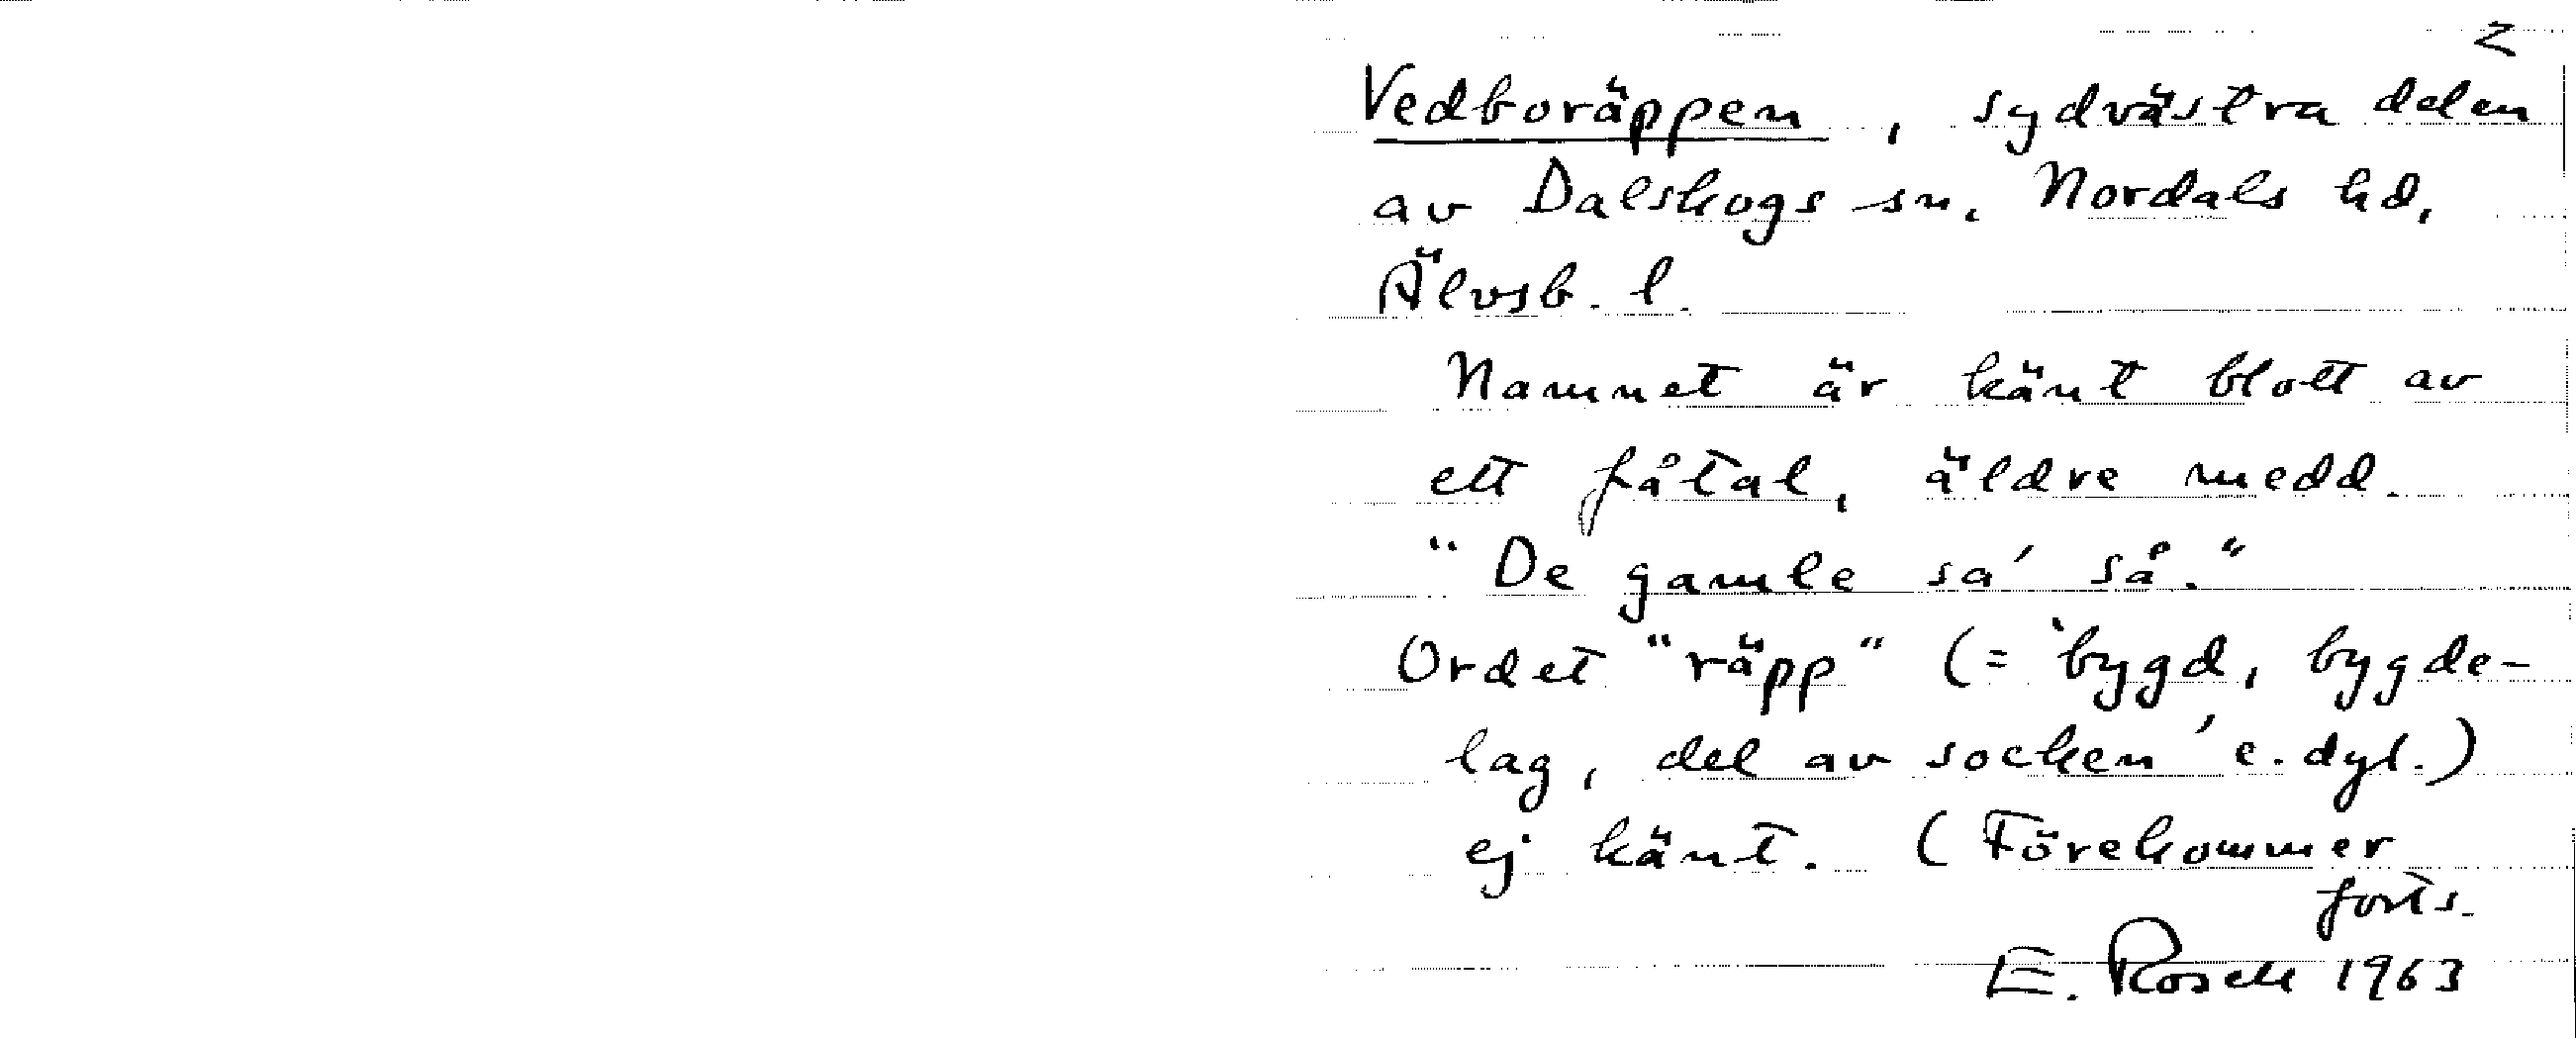 2
Vedboräppen, sydvästra delen
av Dalskogs sn. Nordals hd,
Älvsb. l.
Namnet är känt blott av
ett fåtal, äldre medd.
"De gamle sa' så."
Ordet "räpp" (= 'bygd, bygde-
lag, del av socken' e. dyl.)
ej känt. (Förekommer
forts.
E. Rosell 1963